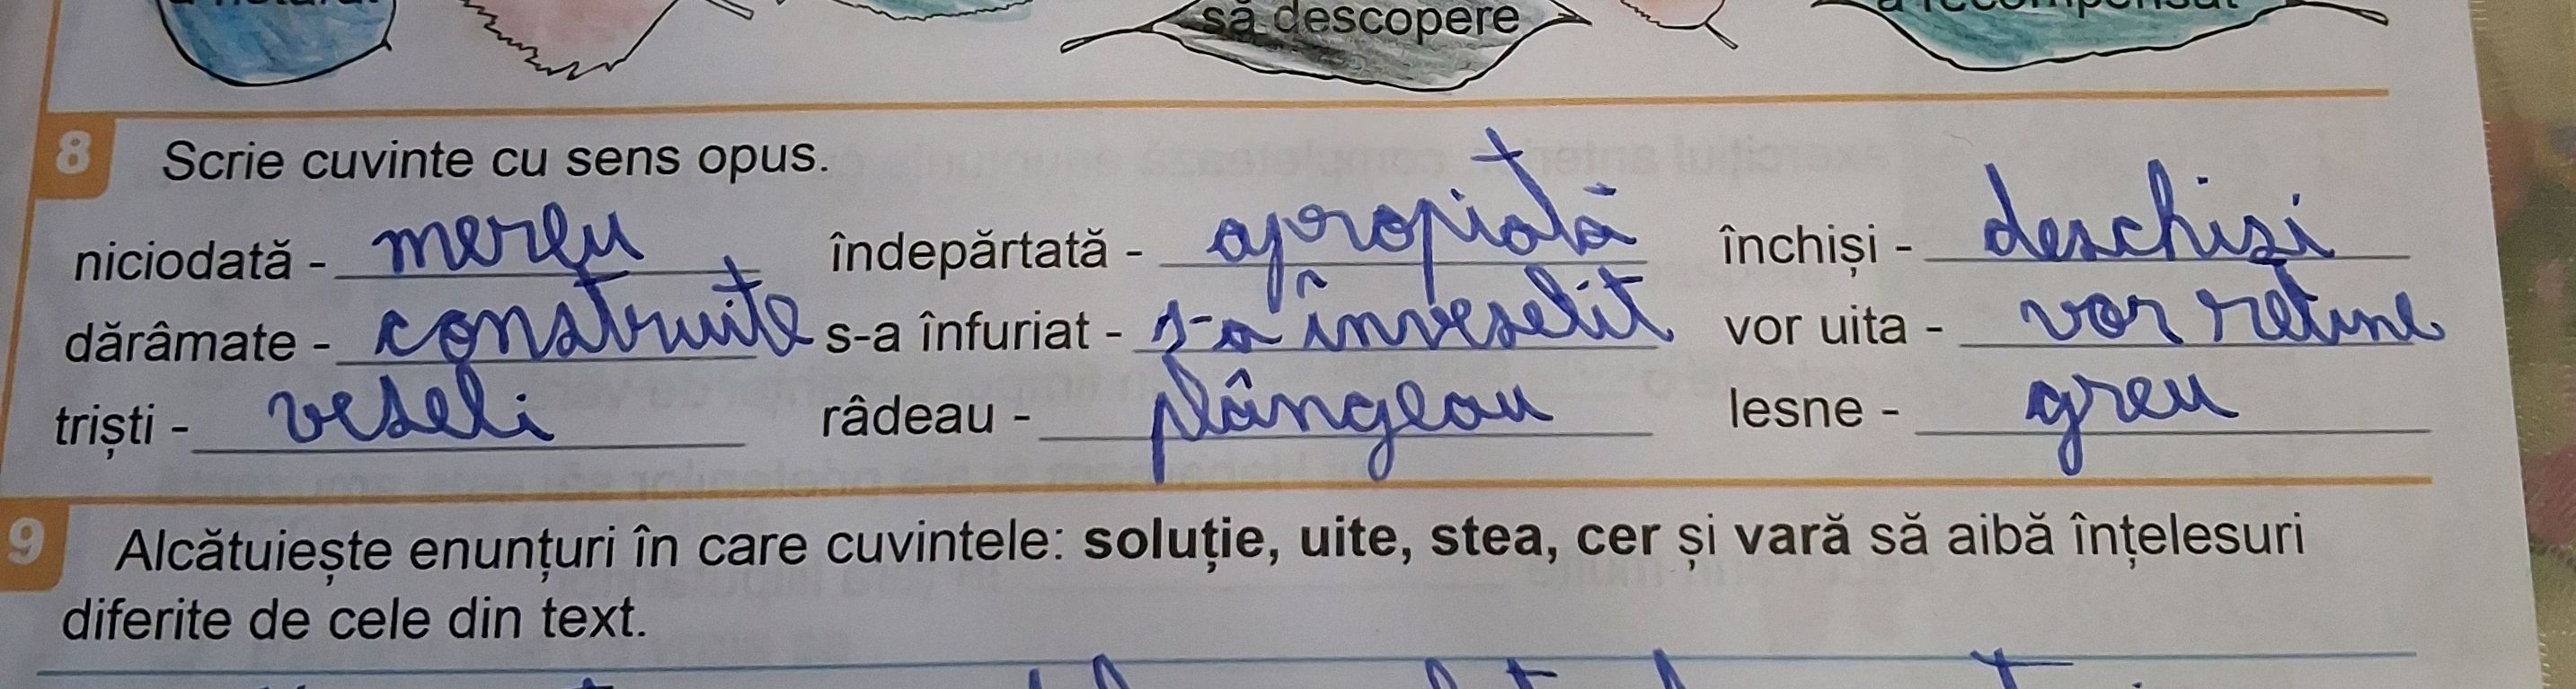 să descopere
8 Scrie cuvinte cu sens opus.
niciodată - mereu îndepărtată - apropiată închiși - deschiși
dărâmate - construite s-a înfuriat - s-a înveselit vor uita - vor retine
triști - veseli râdeau - plângeau lesne - greu
9 Alcătuiește enunțuri în care cuvintele: soluție, uite, stea, cer și vară să aibă înțelesuri
diferite de cele din text.